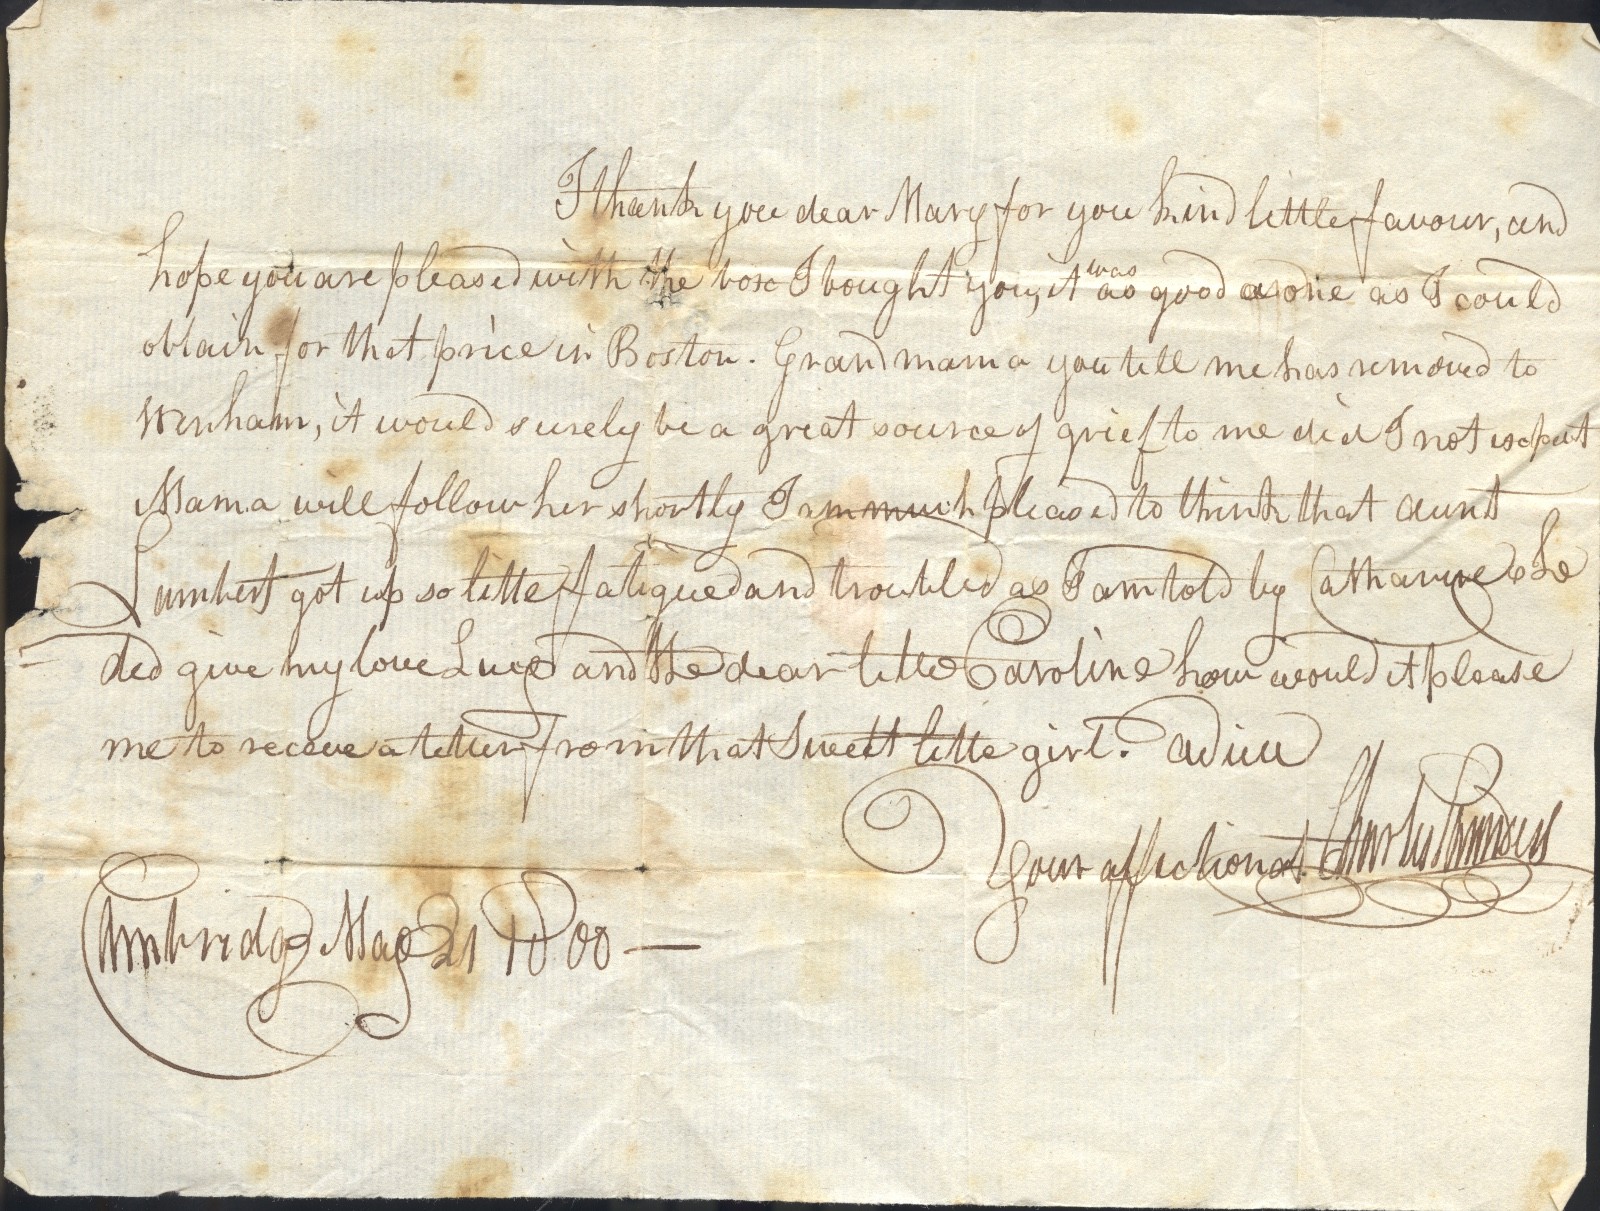 I thank you dear Mary for you kind little favour, and
hope you are pleased with the box I bought you, it was as good a one as I could
obtain for that price in Boston. Grandmama you tell me has removed to
Wenham, it would surely be a great source of grief to me did I not expect
Mama will follow her shortly I am much pleased to think that aunt
Lambert got up so little fatigued and troubled as I am told by Catharine she
did give my love Lucy and the dear little Caroline how would it please
me to receve a letter from that Sweet little girl. Adieu
Your affectionat. Charles
Cambridge May 21 1800 —